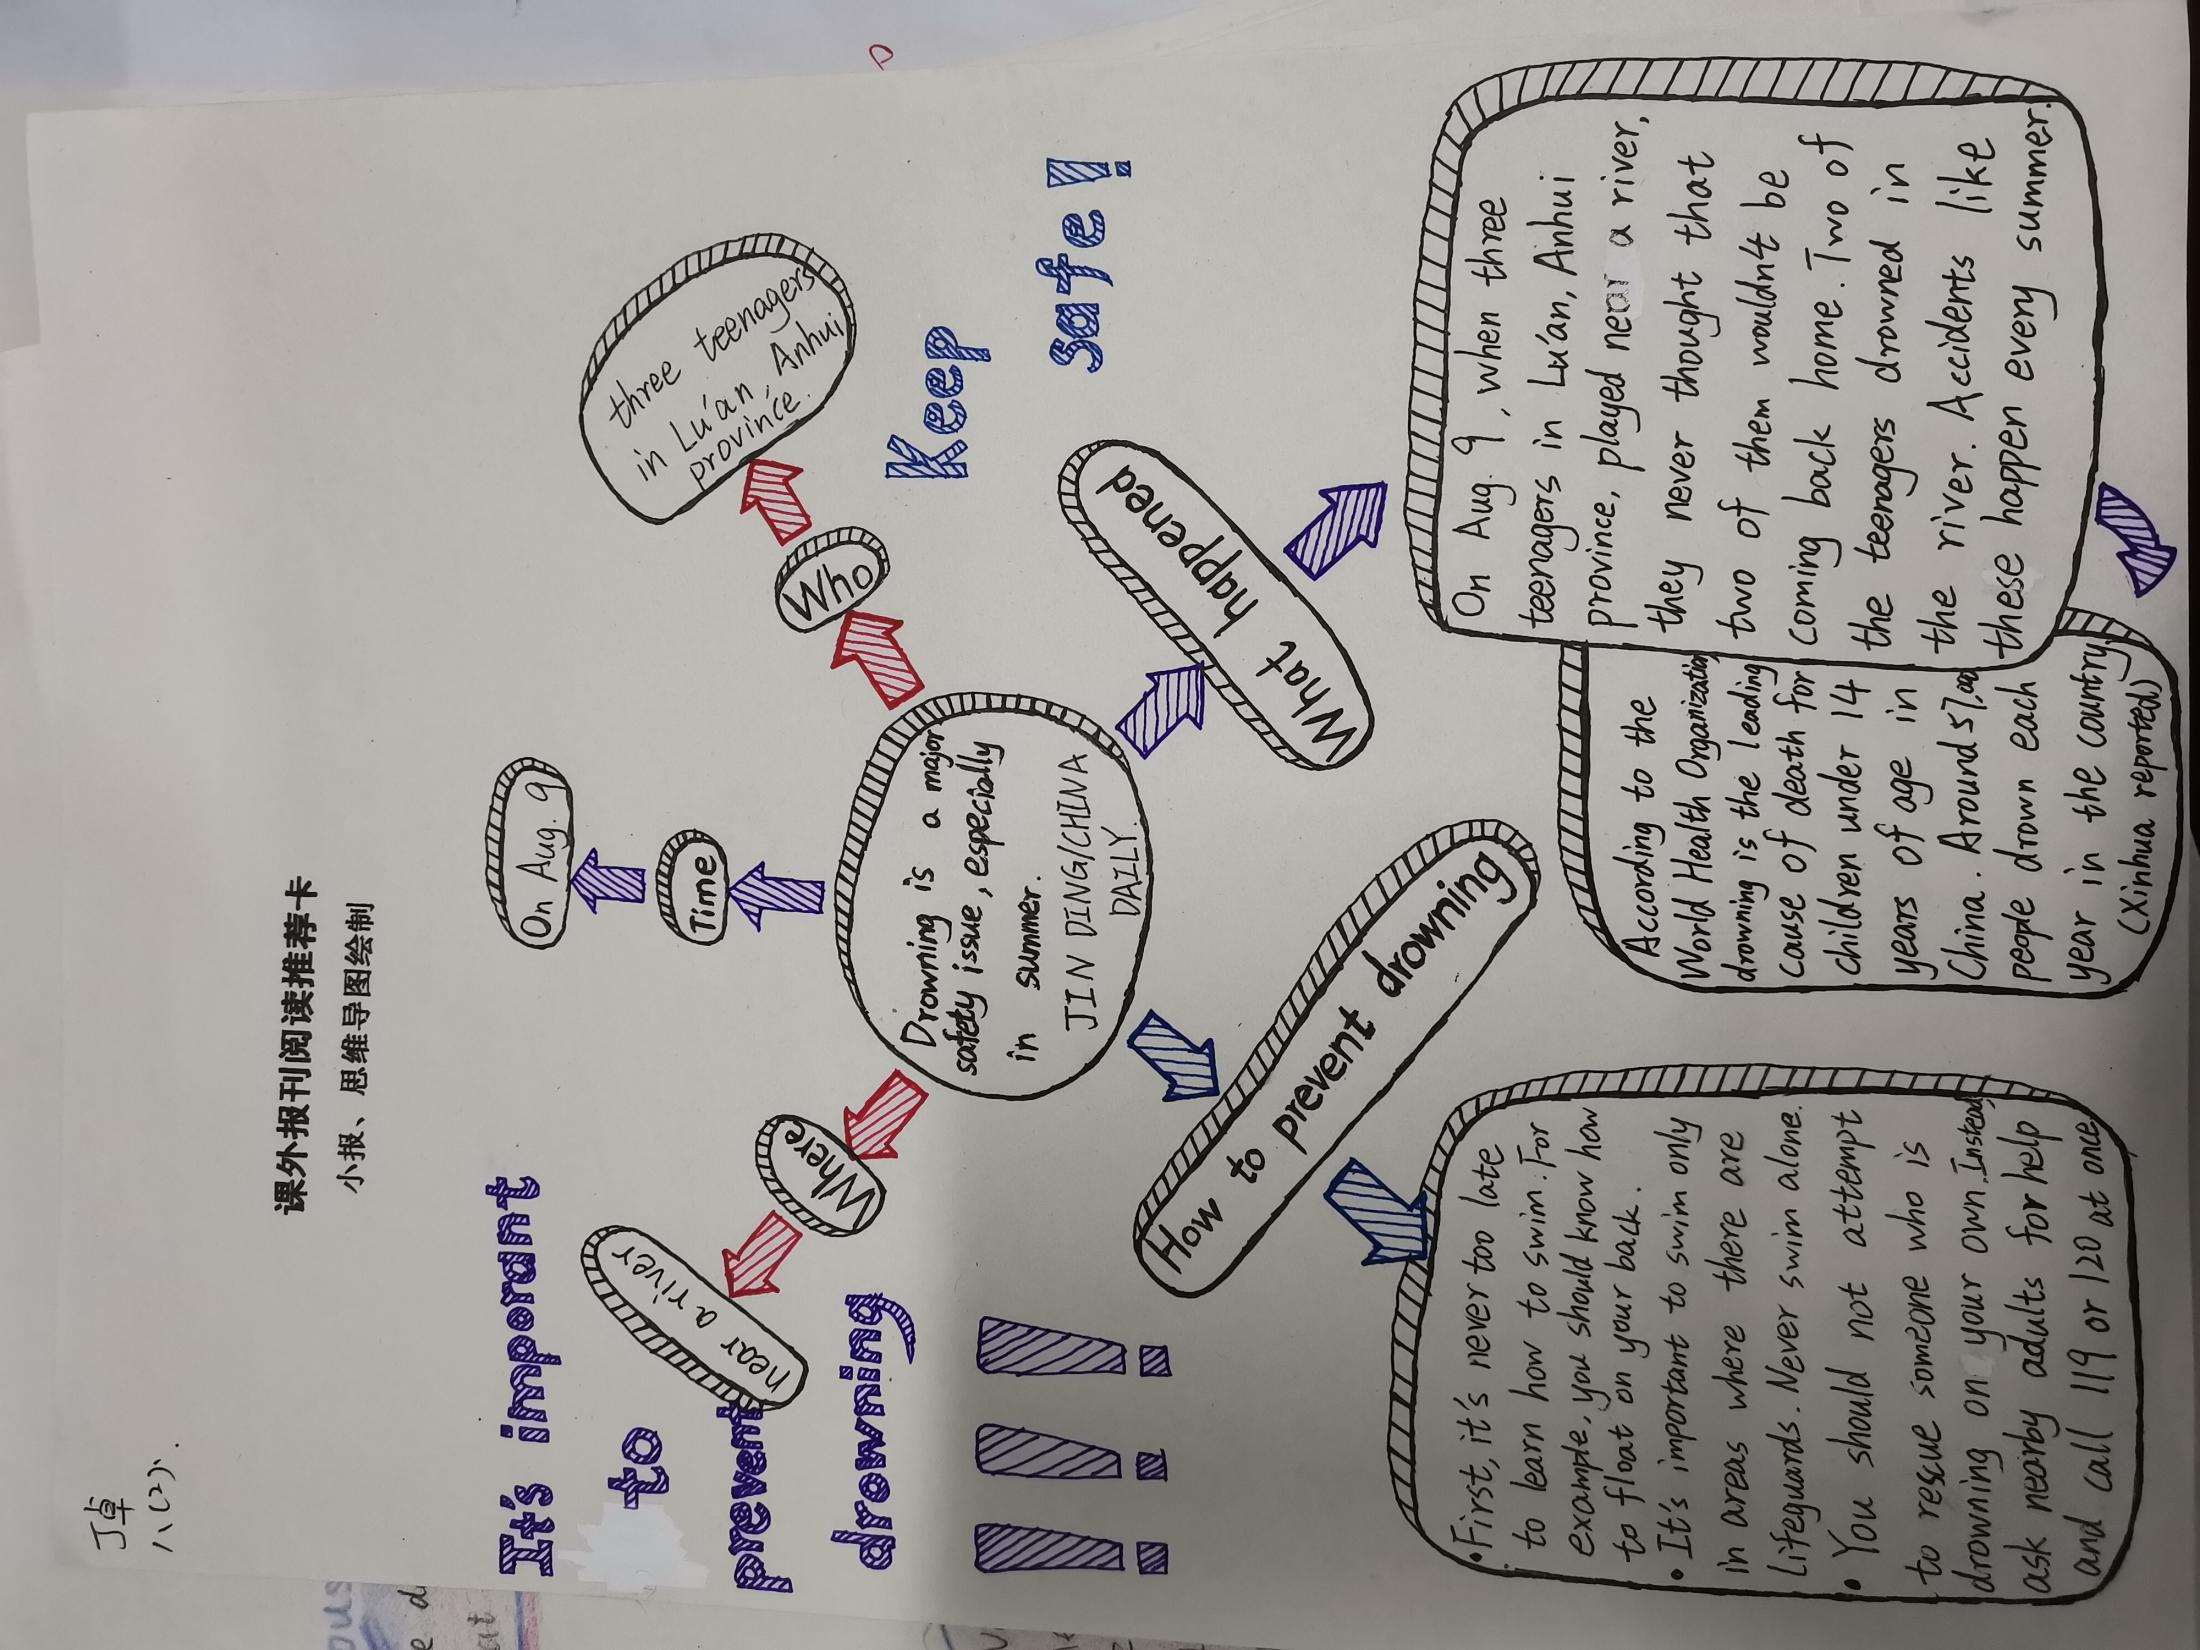 丁卓
八(2).
课外报刊阅读推荐卡
小报、思维导图绘制
It's imporant
to
prevent
drowning
!!!
Keep
safe!
Drowning is a major
safety issue, especially
in summer.
JIN DING/CHINA
DAILY.
Time
On Aug. 9
Who
three teenagers
in Lu'an, Anhui
province.
Where
near a river
What happened
On Aug. 9, when three
teenagers in Lu'an, Anhui
province, played near a river,
they never thought that
two of them wouldn't be
coming back home. Two of
the teenagers drowned in
the river. Accidents like
these happen every summer.
According to the
World Health Organization,
drowning is the leading
cause of death for
children under 14
years of age in
China. Around 57,000
people drown each
year in the country
(Xinhua reported)
How to prevent drowning
•First, it's never too late
to learn how to swim. For
example, you should know how
to float on your back.
• It's important to swim only
in areas where there are
lifeguards. Never swim alone.
• You should not attempt
to rescue someone who is
drowning on your own. Instead,
ask nearby adults for help
and call 119 or 120 at once.